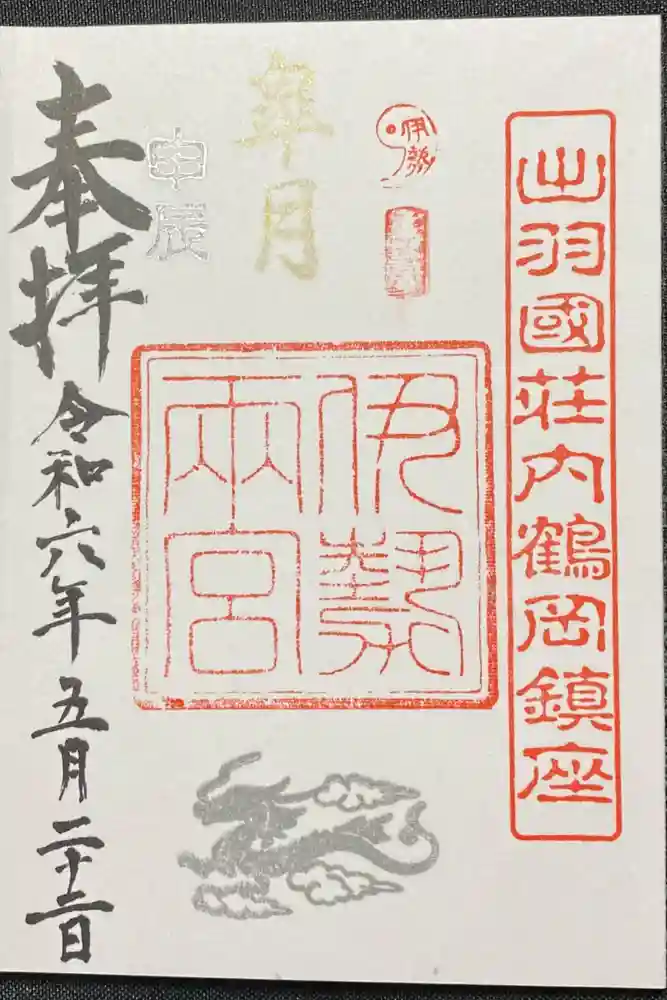 出羽國荘内鶴岡鎮座
伊勢
皐月
甲辰
伊勢
兩宮
奉拝
令和六年五月二十二日